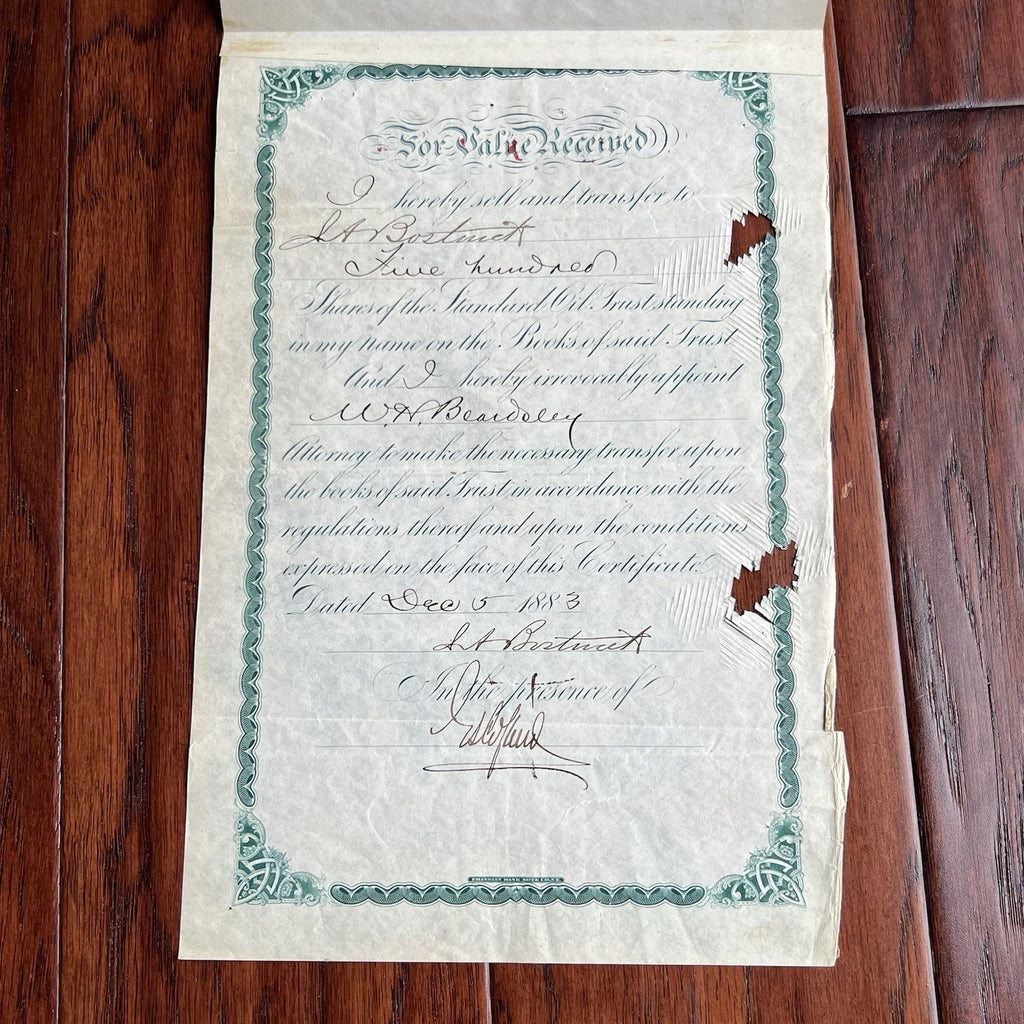 For Value Received
I hereby sell and transfer to
J A Bostwick
Five hundred
Shares of the Standard Oil Trust standing
in my name on the Books of said Trust
And I hereby irrevocably appoint
W. H. Beardsley
Attorney to make the necessary transfer upon
the books of said Trust in accordance with the
regulations thereof and upon the conditions
expressed on the face of this Certificate
Dated Dec 5 1883
J A Bostwick
In the presence of
FRANKLIN BANK NOTE CO. N.Y.